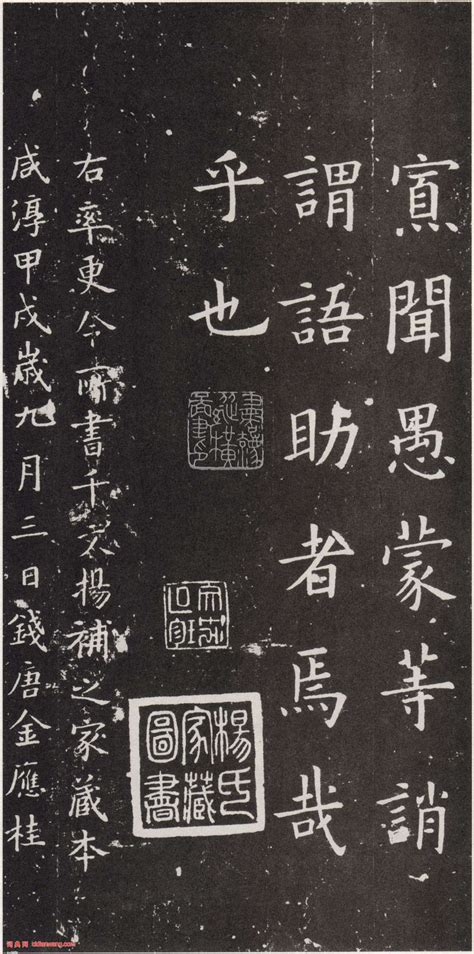 寡聞愚蒙等誚
謂語助者焉哉
乎也
右率更令所書千文揚補之家藏本
咸淳甲戌歲九月三日錢唐金應桂
楊氏家藏圖書
词典网 cidianwang.com